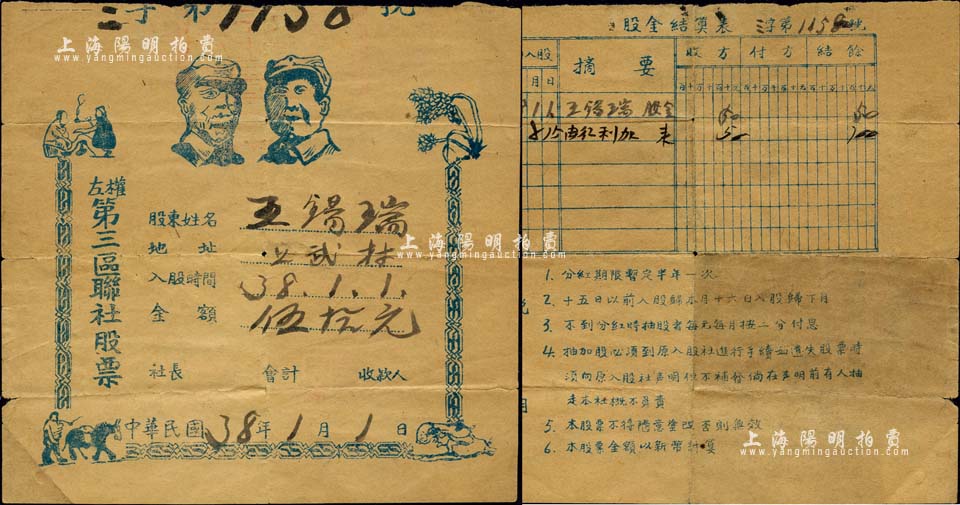 三字第1158號
上海陽明拍賣
www.yangmingauction.com
左權第三區聯社股票
股東姓名 王錫瑞
地址 必武村
入股時間 38.1.1.
金額 伍拾元
社長 會計 收款人
中華民國38年1月1日
股金結算表 三字第1158號
入股 摘要 收方 付方 結餘
月日
王錫瑞 股金 50 50
由紅利加來 50 100
1. 分紅期限暫定半年一次
2. 十五日以前入股歸本月十六日入股歸下月
3. 不到分紅時抽股者每元每月按二分付息
4. 抽加股必須到原入股社進行手續如遺失股票時
須向原入股社声明但不補發倘在声明前有人抽
走本社概不負責
5. 本股票不得隨意塗改否則無效
6. 本股票金額以新幣計算
上海陽明拍賣
www.yangmingauction.com
上海陽明拍賣
www.yangmingauction.com
上海陽明拍賣
www.yangmingauction.com